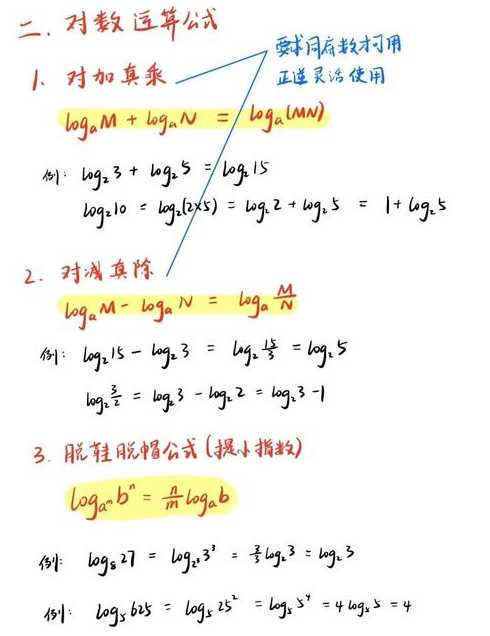 二、对数运算公式
要求同底数才可用
正逆灵活使用
1、对加真乘
logₐM + logₐN = logₐ(MN)
例: log₂3 + log₂5 = log₂15
log₂10 = log₂(2×5) = log₂2 + log₂5 = 1 + log₂5
2. 对减真除
logₐM - logₐN = logₐ M/N
例: log₂15 - log₂3 = log₂ 15/3 = log₂5
log₂ 3/2 = log₂3 - log₂2 = log₂3 - 1
3. 脱鞋脱帽公式(提小指数)
log_{a^m} b^n = n/m logₐb
例: log₈27 = log_{2^3} 3^3 = 3/3 log₂3 = log₂3
例: log₅625 = log₅25² = log₅5⁴ = 4log₅5 = 4